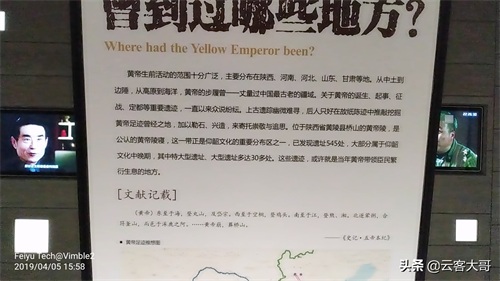 曾到过哪些地方?
Where had the Yellow Emperor been?
黄帝生前活动的范围十分广泛,主要分布在陕西、河南、河北、山东、甘肃等地。从中土到
边陲,从高原到海洋,黄帝的步履曾一一丈量过中国最古老的疆域。关于黄帝的诞生、起事、征
战、定都等重要遗迹,一直以来众说纷纭。上古遗踪幽微难寻,后人只好在故纸陈迹中推敲挖掘
黄帝足迹曾经之地,加以勒石、兴造,来寄托崇敬与追思。位于陕西省黄陵县桥山的黄帝陵,是
公认的黄帝陵寝,这一带正是仰韶文化的重要分布区之一,已发现遗址545处,大部分属于仰韶
文化中晚期,其中特大型遗址、大型遗址多达30多处。这些遗址,或许就是当年黄帝带领臣民繁
衍生息的地方。
[文献记载]
《黄帝》东至于海,登丸山,及岱宗。西至于空桐,登鸡头。南至于江,登熊、湘。北逐荤粥,合
符釜山,而邑于涿鹿之阿。……黄帝崩,葬桥山。
——《史记·五帝本纪》
● 黄帝足迹推想图
Feiyu Tech@Vimble2
2019/04/05 15:58
头条 @云客大哥